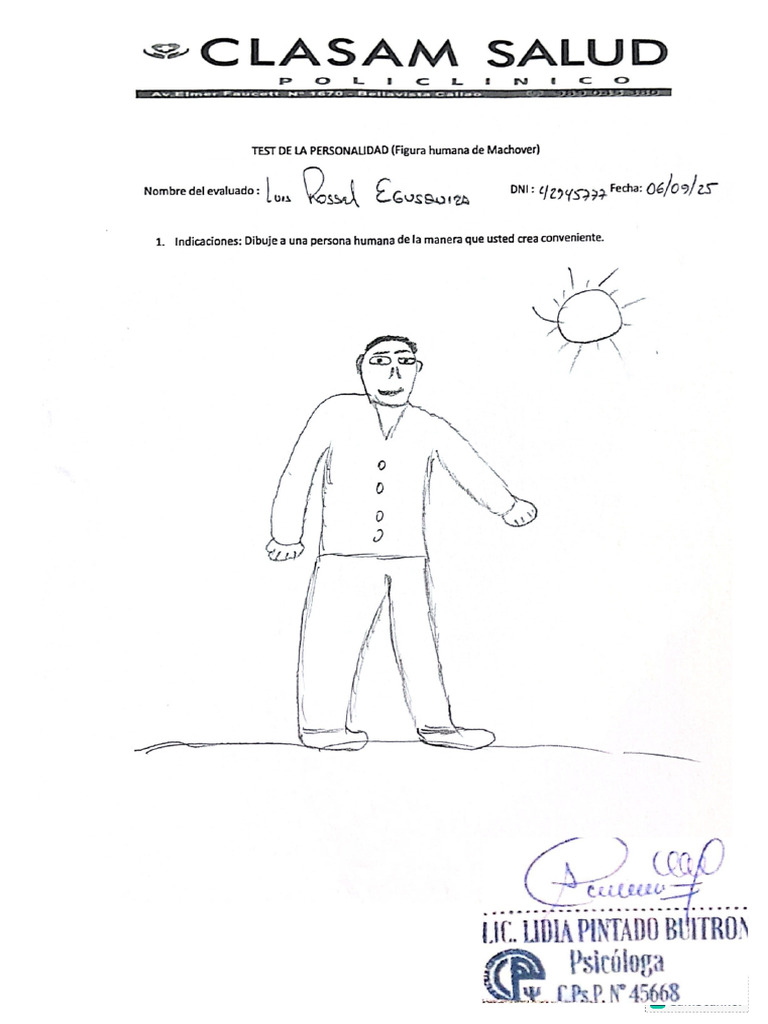 CLASAM SALUD
POLICLINICO
Av. Elmer Faucett N° 1670 - Bellavista Callao
TEST DE LA PERSONALIDAD (Figura humana de Machover)
Nombre del evaluado : Luis Rossel EGUSQUIZA DNI : 42945777 Fecha: 06/09/25
1. Indicaciones: Dibuje a una persona humana de la manera que usted crea conveniente.
LIC. LIDIA PINTADO BUITRON
Psicóloga
C.Ps.P. N° 45668